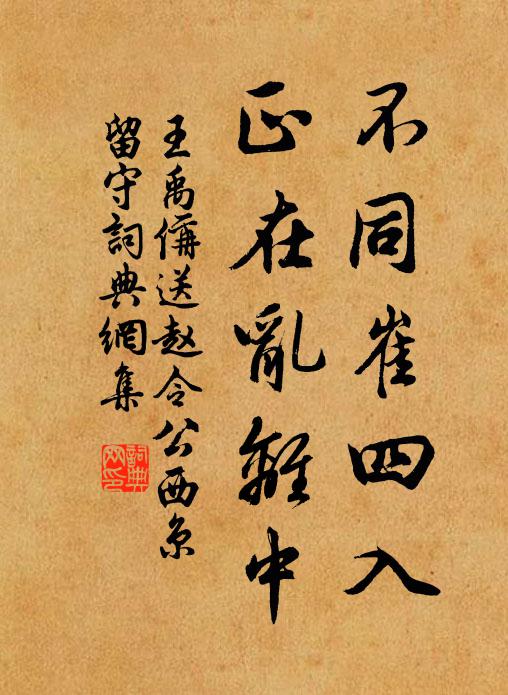 不同崔四入
正在亂離中
王禹偁送赵令公西京
留守詞典網集
詞典网印